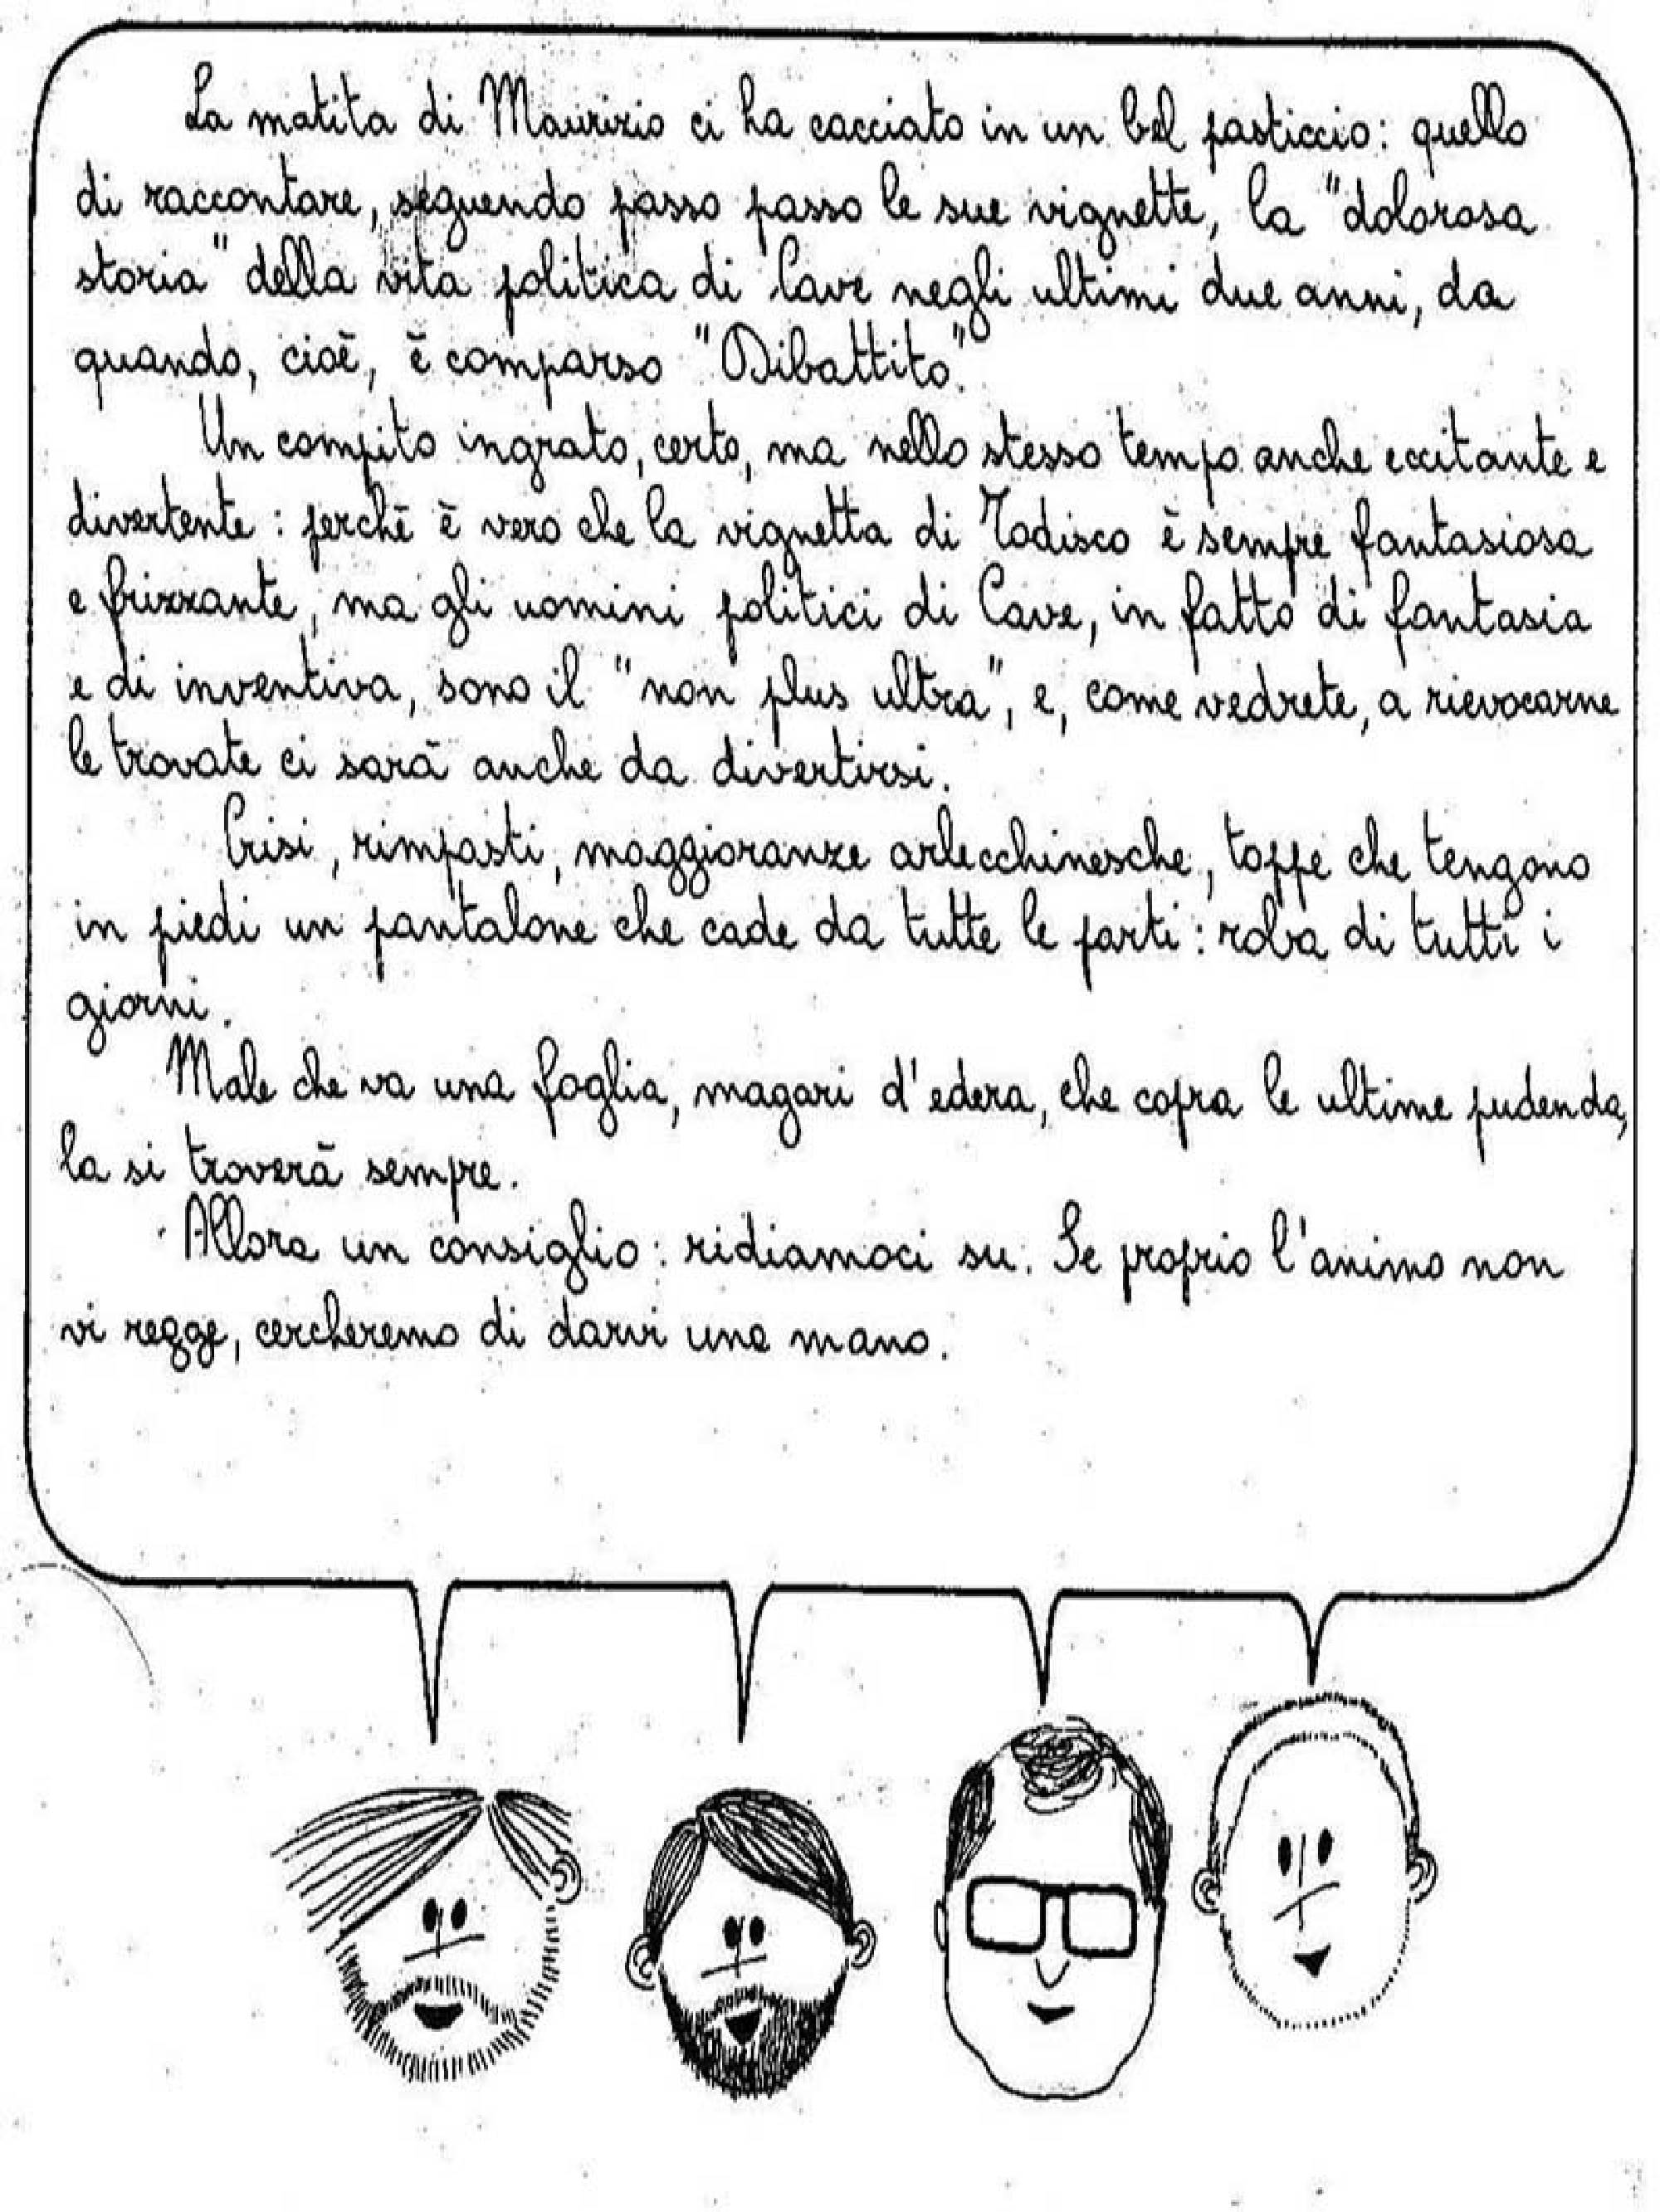 La matita di Maurizio ci ha cacciato in un bel pasticcio: quello
di raccontare, seguendo passo passo le sue vignette, la "dolorosa
storia" della vita politica di Cave negli ultimi due anni, da
quando, cioè, è comparso "Dibattito".
Un compito ingrato, certo, ma nello stesso tempo anche eccitante e
divertente: perchè è vero che la vignetta di Todisco è sempre fantasiosa
e frizzante, ma gli uomini politici di Cave, in fatto di fantasia
e di inventiva, sono il "non plus ultra", e, come vedrete, a rievocarne
le trovate ci sarà anche da divertirsi.
Crisi, rimpasti, maggioranze arlecchinesche, toppe che tengono
in piedi un pantalone che cade da tutte le parti: roba di tutti i
giorni.
Male che va una foglia, magari d'edera, che copra le ultime pudenda,
la si troverà sempre.
Allora un consiglio: ridiamoci su. Se proprio l'animo non
vi regge, cercheremo di darvi una mano.